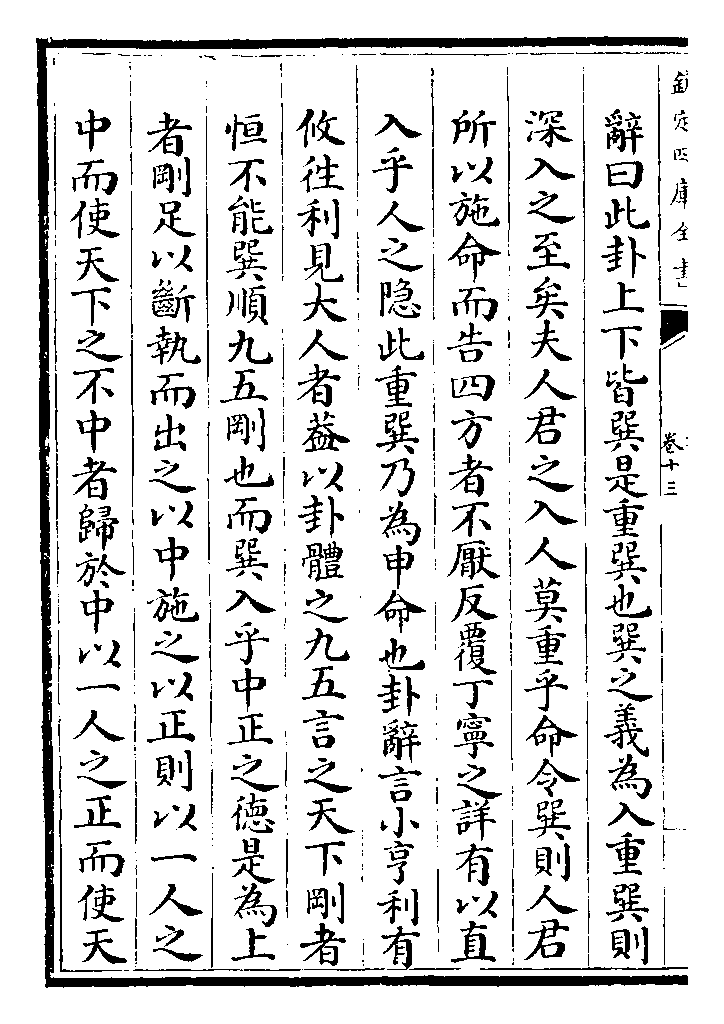 欽定四庫全書
卷十三
辭曰此卦上下皆巽是重巽也巽之義為入重巽則
深入之至矣夫人君之入人莫重乎命令巽則人君
所以施命而告四方者不厭反覆丁寧之詳有以直
入乎人之隐此重巽乃為申命也卦辭言小亨利有
攸往利見大人者葢以卦體之九五言之天下剛者
恒不能巽順九五剛也而巽入乎中正之德是為上
者剛足以斷執而出之以中施之以正則以一人之
中而使天下之不中者歸於中以一人之正而使天